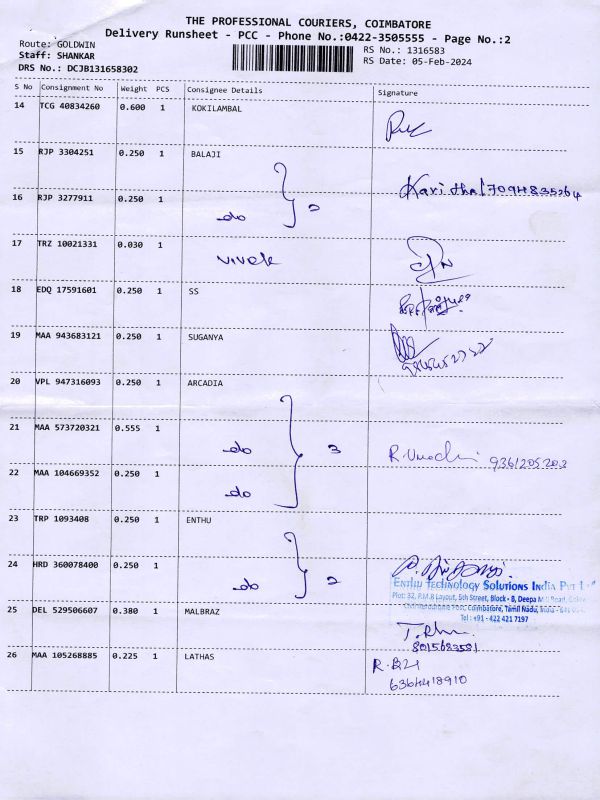 THE PROFESSIONAL COURIERS, COIMBATORE
Delivery Runsheet - PCC - Phone No.:0422-3505555 - Page No.:2
Route: GOLDWIN
RS No.: 1316583
Staff: SHANKAR
RS Date: 05-Feb-2024
DRS No.: DCJB131658302
S No Consignment No Weight PCS Consignee Details Signature
14 TCG 40834260 0.600 1 KOKILAMBAL
15 RJP 3304251 0.250 1 BALAJI
Kavitha / 7094835264
16 RJP 3277911 0.250 1 do } 2
17 TRZ 10021331 0.030 1 vivek
18 EDQ 17591601 0.250 1 SS
19 MAA 943683121 0.250 1 SUGANYA
20 VPL 947316093 0.250 1 ARCADIA
21 MAA 573720321 0.555 1 do } 3 9361205203
22 MAA 104669352 0.250 1 do
23 TRP 1093408 0.250 1 ENTHU
24 HRD 360078400 0.250 1 do } 2
ENTHU TECHNOLOGY SOLUTIONS INDIA PVT L
Plot: 32, P.M.R Layout, 5th Street, Block - B, Deepa Mill Road,
Coimbatore, Tamil Nadu, India
Tel : +91 - 422 421 7197
25 DEL 529506607 0.380 1 MALBRAZ
8015683581
26 MAA 105268885 0.225 1 LATHAS
6364418910